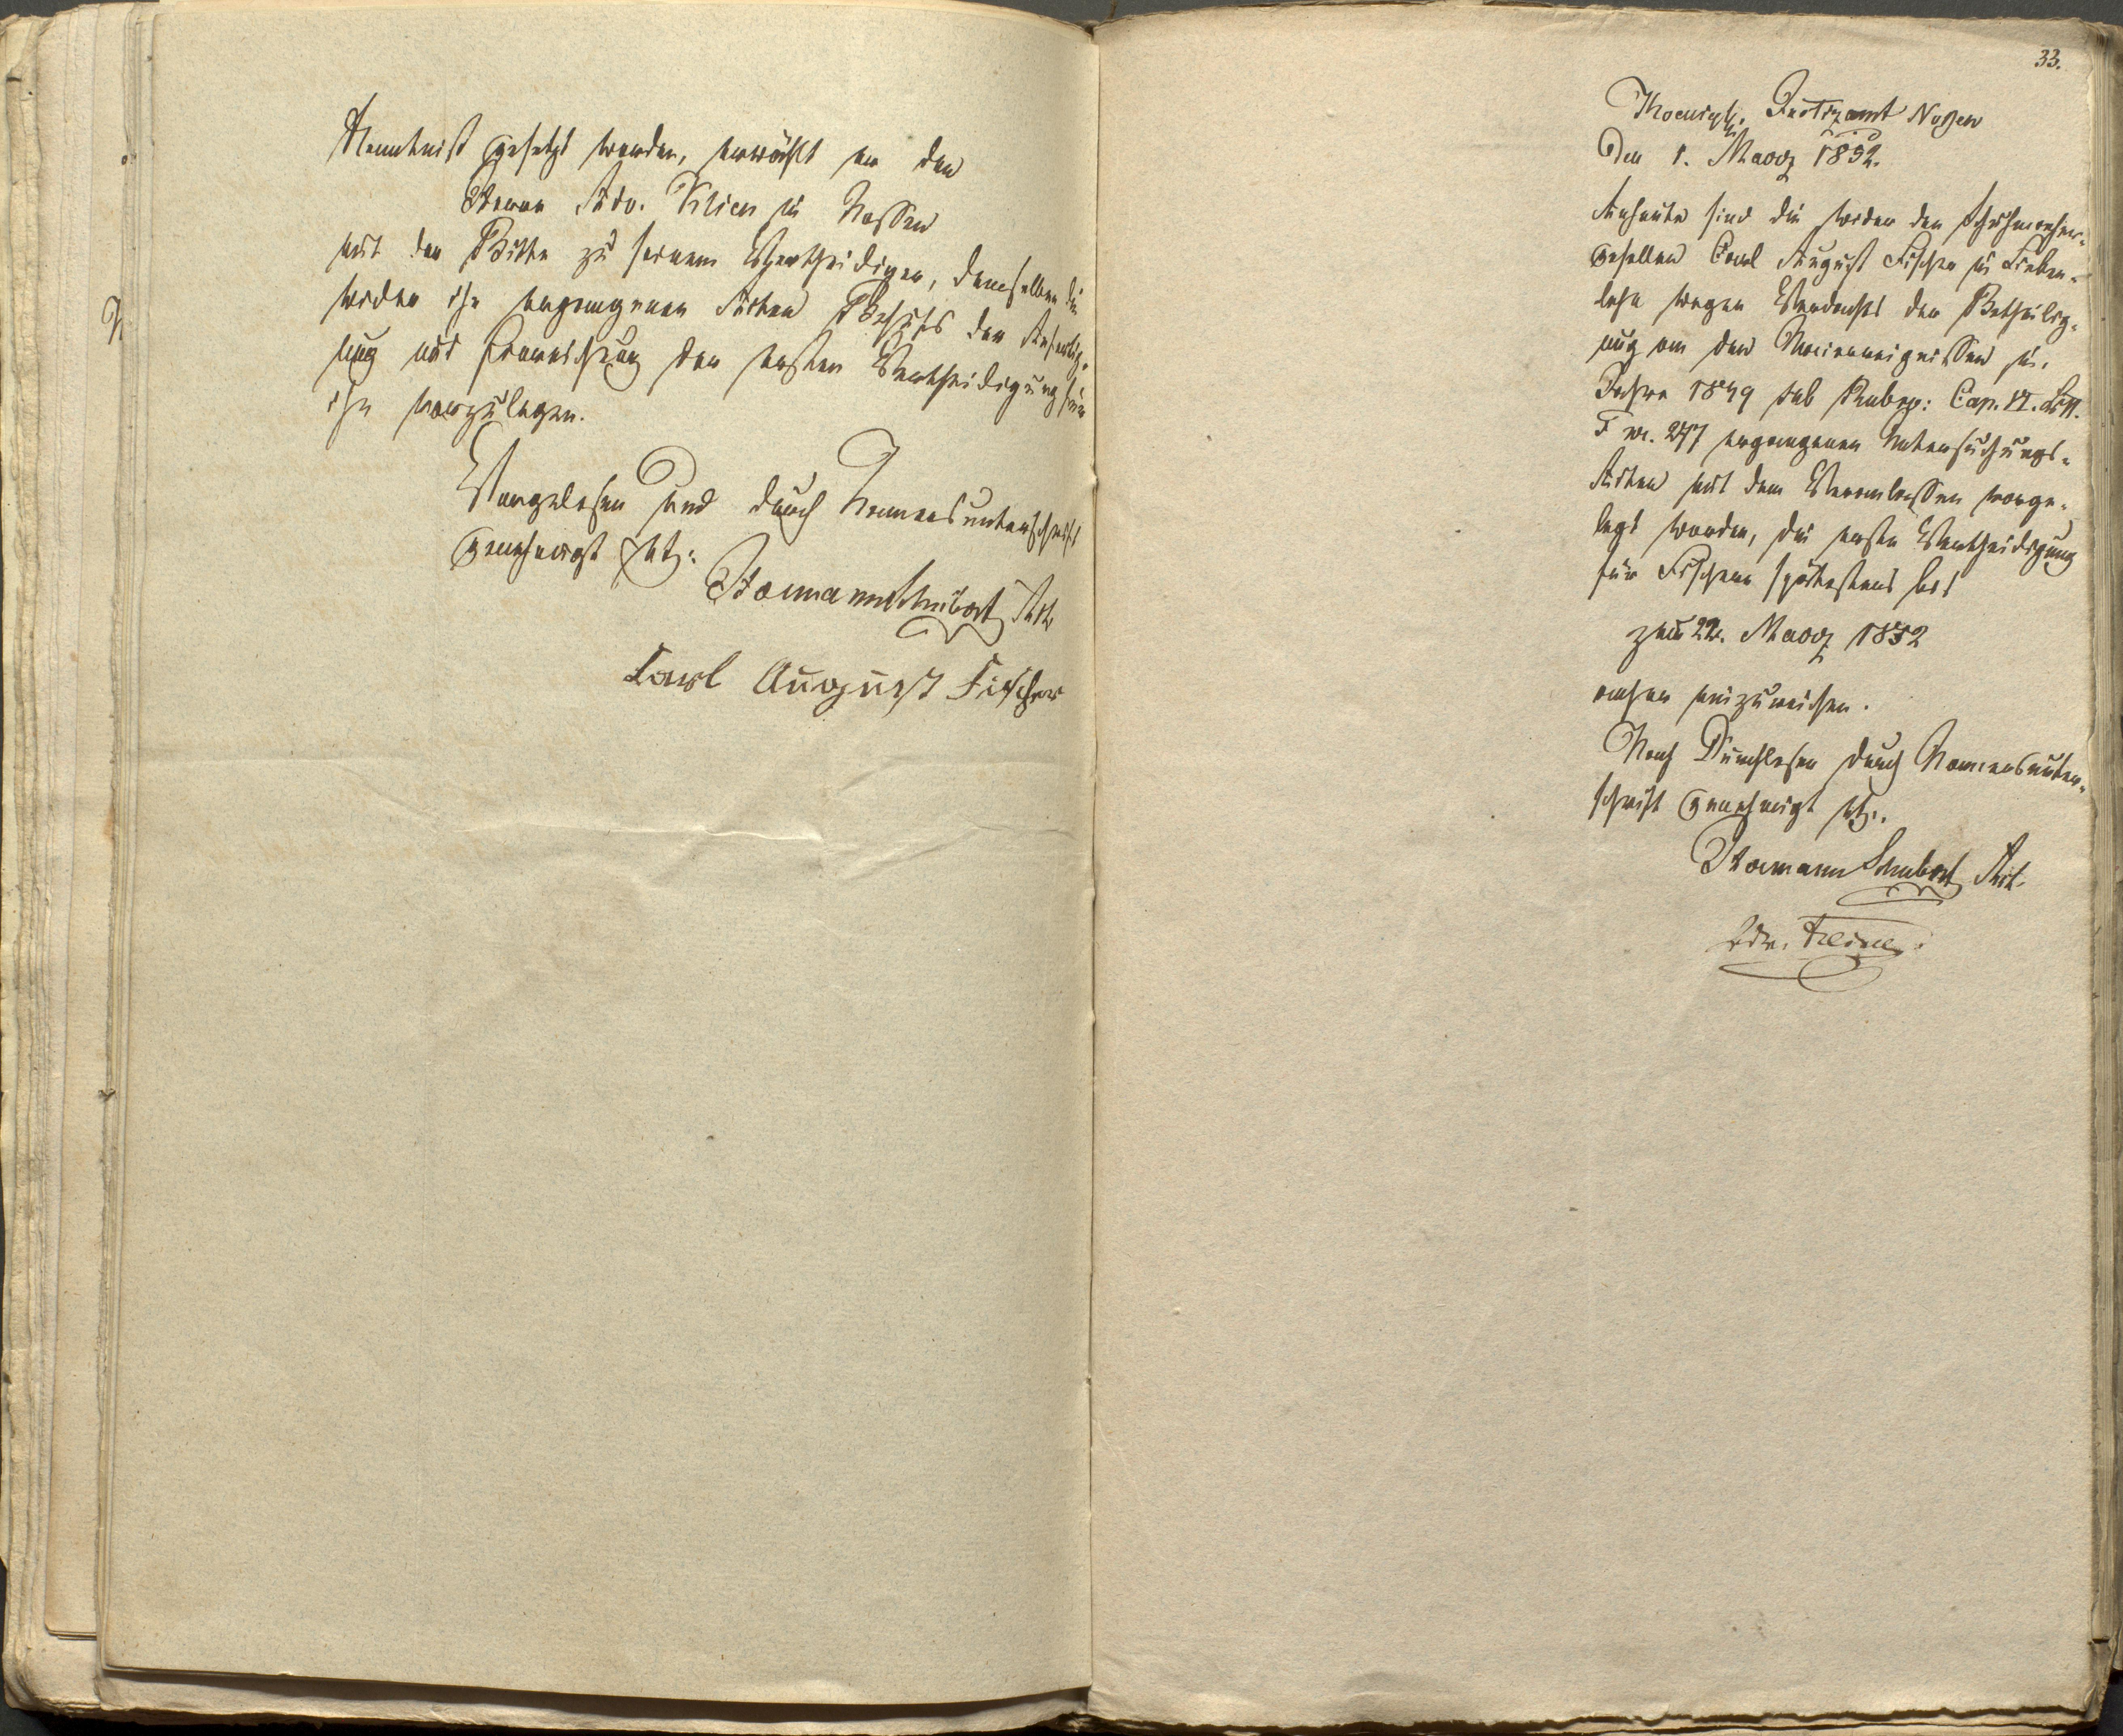 Kenntniß gesetzt worden, erwählt er den
Herrn Adv. Klien zu Nossen
mit der Bitte zu seinem Vertheidiger, demselben die
wider ihn ergangenen Acten Behufs der Anfertig-
ung und Einreichung der ersten Vertheidigung für
ihn vorzulegen.
Vorgelesen und durch Namensunterschrift
genehmigt
Hermann Schubert Act.
Carl August Fischer
33.
Justizamt Nossen
Den 1. März 1852.
Anheute sind die wider den Schuhmacher-
gesellen Carl August Fischer zu Sieben-
lehn wegen Verdachts der Betheilig-
ung an den Maiereignissen im
Jahre 1849 sub Rubr: Cap. VI. Litt.
F nr. 247 ergangenen Untersuchungs-
Acten mit dem Veranlassen vorge-
legt worden, die erste Vertheidigung
für Fischern spätestens bis
zum 22. März 1852
anher einzureichen.
Nach Durchlesen durch Namensunter-
schrift genehmigt
Hermann Schubert Act.
Adv. Klien.